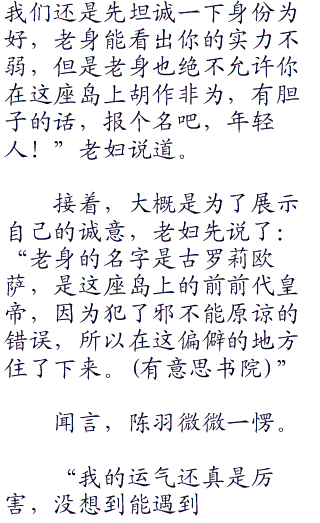 我们还是先坦诚一下身份为
好，老身能看出你的实力不
弱，但是老身也绝不允许你
在这座岛上胡作非为，有胆
子的话，报个名吧，年轻
人！”老妇说道。
接着，大概是为了展示
自己的诚意，老妇先说了：
“老身的名字是古罗莉欧
萨，是这座岛上的前前代皇
帝，因为犯了邪不能原谅的
错误，所以在这偏僻的地方
住了下来。(有意思书院)”
闻言，陈羽微微一愣。
“我的运气还真是厉
害，没想到能遇到